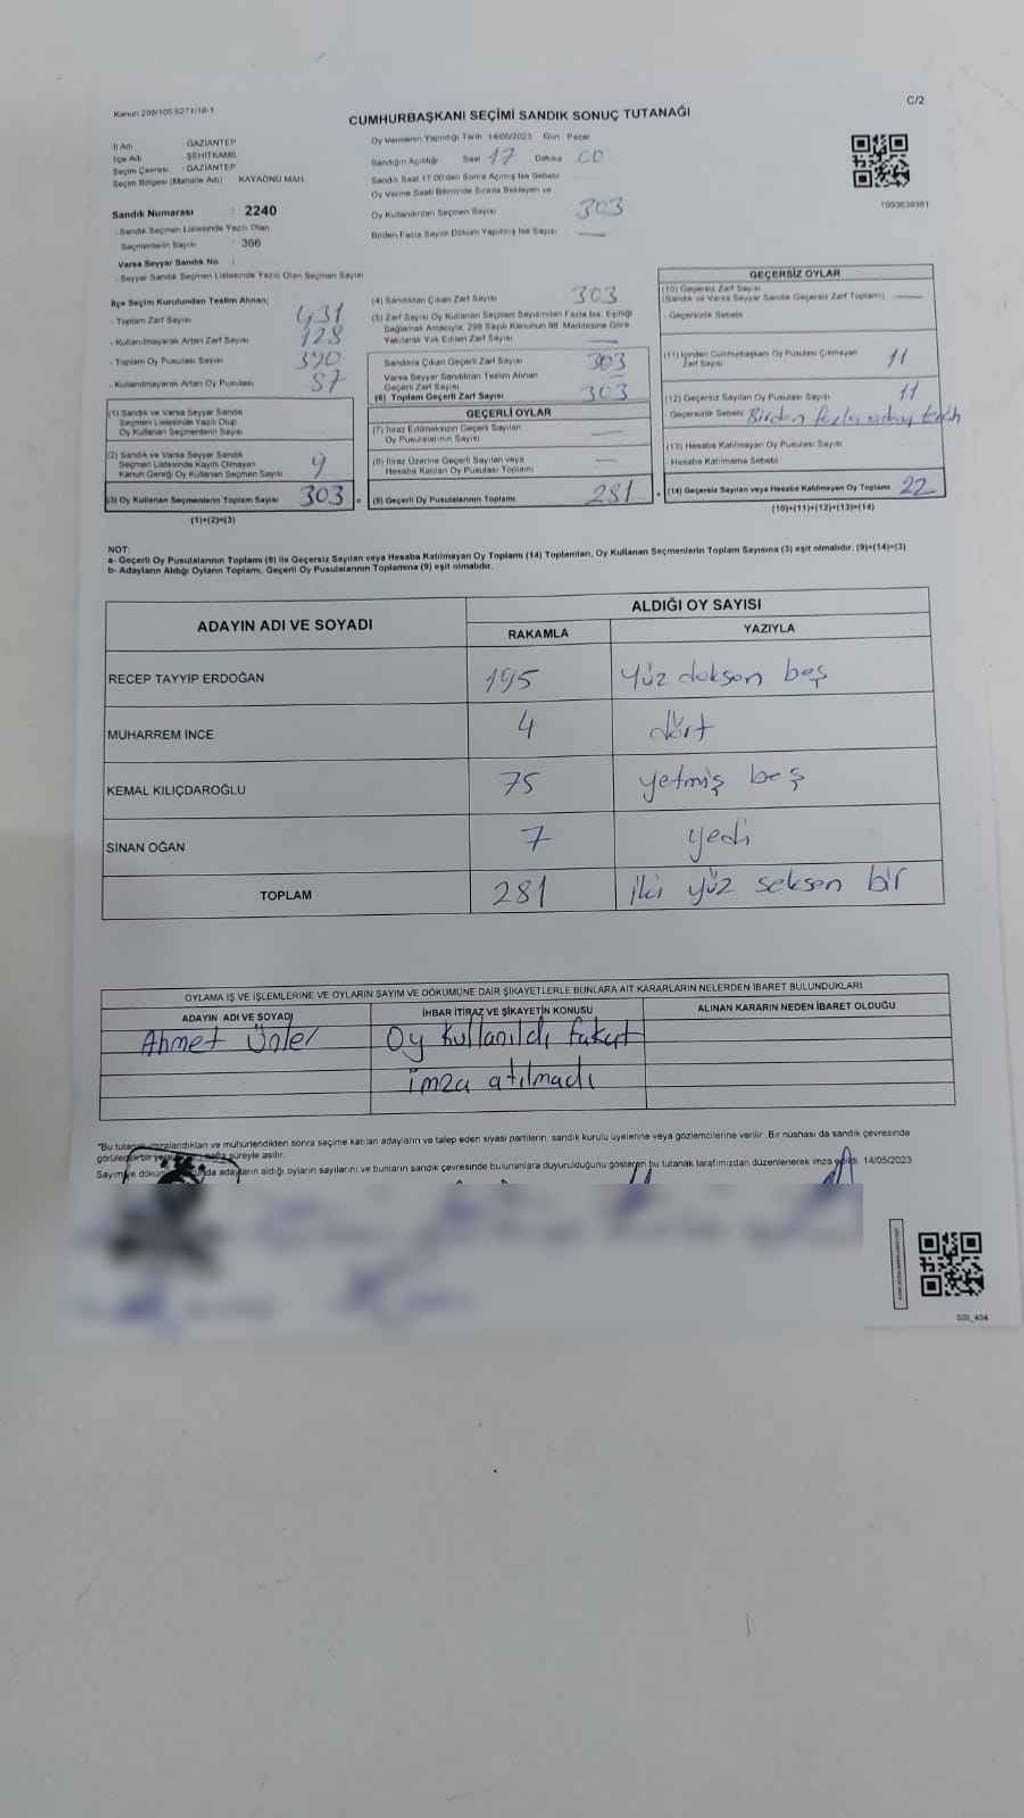 Kanun 298/105.6271/18-1
C/2
CUMHURBAŞKANI SEÇİMİ SANDIK SONUÇ TUTANAĞI
İl Adı : GAZİANTEP
İlçe Adı : ŞEHİTKAMİL
Seçim Çevresi : GAZİANTEP
Seçim Bölgesi (Mahalle Adı) KAYAÖNÜ MAH.
Sandık Numarası : 2240
- Sandık Seçmen Listesinde Yazılı Olan
Seçmenlerin Sayısı : 366
Varsa Seyyar Sandık No :
- Seyyar Sandık Seçmen Listesinde Yazılı Olan Seçmen Sayısı
Oy Vermenin Yapıldığı Tarih 14/05/2023 Gün Pazar
Sandığın Açıldığı Saat 17 Dakika 00
Sandık Saat 17.00'den Sonra Açılmış İse Sebebi
Oy Verme Saati Bitiminde Sırada Bekleyen ve
Oy Kullandırılan Seçmen Sayısı 303
Birden Fazla Sayım Döküm Yapılmış İse Sayısı —
İlçe Seçim Kurulundan Teslim Alınan;
- Toplam Zarf Sayısı 431
- Kullanılmayarak Artan Zarf Sayısı 128
- Toplam Oy Pusulası Sayısı 390
- Kullanılmayarak Artan Oy Pusulası 87
(1) Sandık ve Varsa Seyyar Sandık
Seçmen Listesinde Yazılı Olup
Oy Kullanan Seçmenlerin Sayısı
(2) Sandık ve Varsa Seyyar Sandık
Seçmen Listesinde Kayıtlı Olmayan
Kanun Gereği Oy Kullanan Seçmen Sayısı 9
(3) Oy Kullanan Seçmenlerin Toplam Sayısı 303
(1)+(2)=(3)
(4) Sandıktan Çıkan Zarf Sayısı 303
(5) Zarf Sayısı Oy Kullanan Seçmen Sayısından Fazla İse, Eşitliği
Sağlamak Amacıyla, 298 Sayılı Kanunun 98. Maddesine Göre
Yakılarak Yok Edilen Zarf Sayısı —
Sandıkta Çıkan Geçerli Zarf Sayısı 303
Varsa Seyyar Sandıktan Teslim Alınan
Geçerli Zarf Sayısı —
(6) Toplam Geçerli Zarf Sayısı 303
GEÇERLİ OYLAR
(7) İtiraz Edilmeksizin Geçerli Sayılan
Oy Pusulalarının Sayısı —
(8) İtiraz Üzerine Geçerli Sayılan veya
Hesaba Katılan Oy Pusulası Toplamı —
(9) Geçerli Oy Pusulalarının Toplamı 281
GEÇERSİZ OYLAR
(10) Geçersiz Zarf Sayısı
(Sandık ve Varsa Seyyar Sandık Geçersiz Zarf Toplamı) —
- Geçersizlik Sebebi
(11) İçinden Cumhurbaşkanı Oy Pusulası Çıkmayan
Zarf Sayısı 11
(12) Geçersiz Sayılan Oy Pusulası Sayısı 11
Geçersizlik Sebebi Birden fazla aday tercih
(13) Hesaba Katılmayan Oy Pusulası Sayısı
- Hesaba Katılmama Sebebi
(14) Geçersiz Sayılan veya Hesaba Katılmayan Oy Toplamı 22
(10)+(11)+(12)+(13)=(14)
NOT:
a- Geçerli Oy Pusulalarının Toplamı (9) ile Geçersiz Sayılan veya Hesaba Katılmayan Oy Toplamı (14) Toplamları, Oy Kullanan Seçmenlerin Toplam Sayısına (3) eşit olmalıdır. (9)+(14)=(3)
b- Adayların Aldığı Oyların Toplamı, Geçerli Oy Pusulalarının Toplamına (9) eşit olmalıdır.
ADAYIN ADI VE SOYADI
ALDIĞI OY SAYISI
RAKAMLA YAZIYLA
RECEP TAYYİP ERDOĞAN 195 Yüz doksan beş
MUHARREM İNCE 4 dört
KEMAL KILIÇDAROĞLU 75 yetmiş beş
SİNAN OĞAN 7 yedi
TOPLAM 281 İki yüz seksen bir
OYLAMA İŞ VE İŞLEMLERİNE VE OYLARIN SAYIM VE DÖKÜMÜNE DAİR ŞİKAYETLERLE BUNLARA AİT KARARLARIN NELERDEN İBARET BULUNDUKLARI
ADAYIN ADI VE SOYADI İHBAR İTİRAZ VE ŞİKAYETİN KONUSU ALINAN KARARIN NEDEN İBARET OLDUĞU
Ahmet Ünler Oy kullanıldı fakat
imza atılmadı
*Bu tutanak imzalandıktan ve mühürlendikten sonra seçime katılan adayların ve talep eden siyasi partilerin, sandık kurulu üyelerine veya gözlemcilerine verilir. Bir nüshası da sandık çevresinde
görülebilir bir yere hafta süreyle asılır.
Sayım ve döküm adayların aldığı oyların sayılarını ve bunların sandık çevresinde bulunanlara duyurulduğunu gösteren bu tutanak tarafımızdan düzenlenerek imza edildi. 14/05/2023